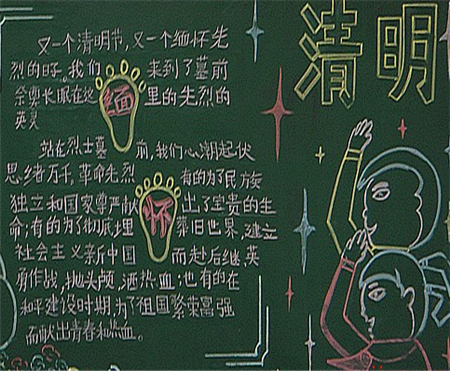 清明
又一个清明节,又一个缅怀先
烈的日子。我们来到了墓前
祭奠长眠在这里的先烈的
英灵
缅
站在烈士墓前,我们心潮起伏
思绪万千,革命先烈有的为了民族
独立和国家尊严献出了宝贵的生
命;有的为了彻底埋葬旧世界,建立
社会主义新中国而赴后继,英
勇作战,抛头颅,洒热血;也有的在
和平建设时期,为了祖国繁荣富强
而献出青春和热血。
怀